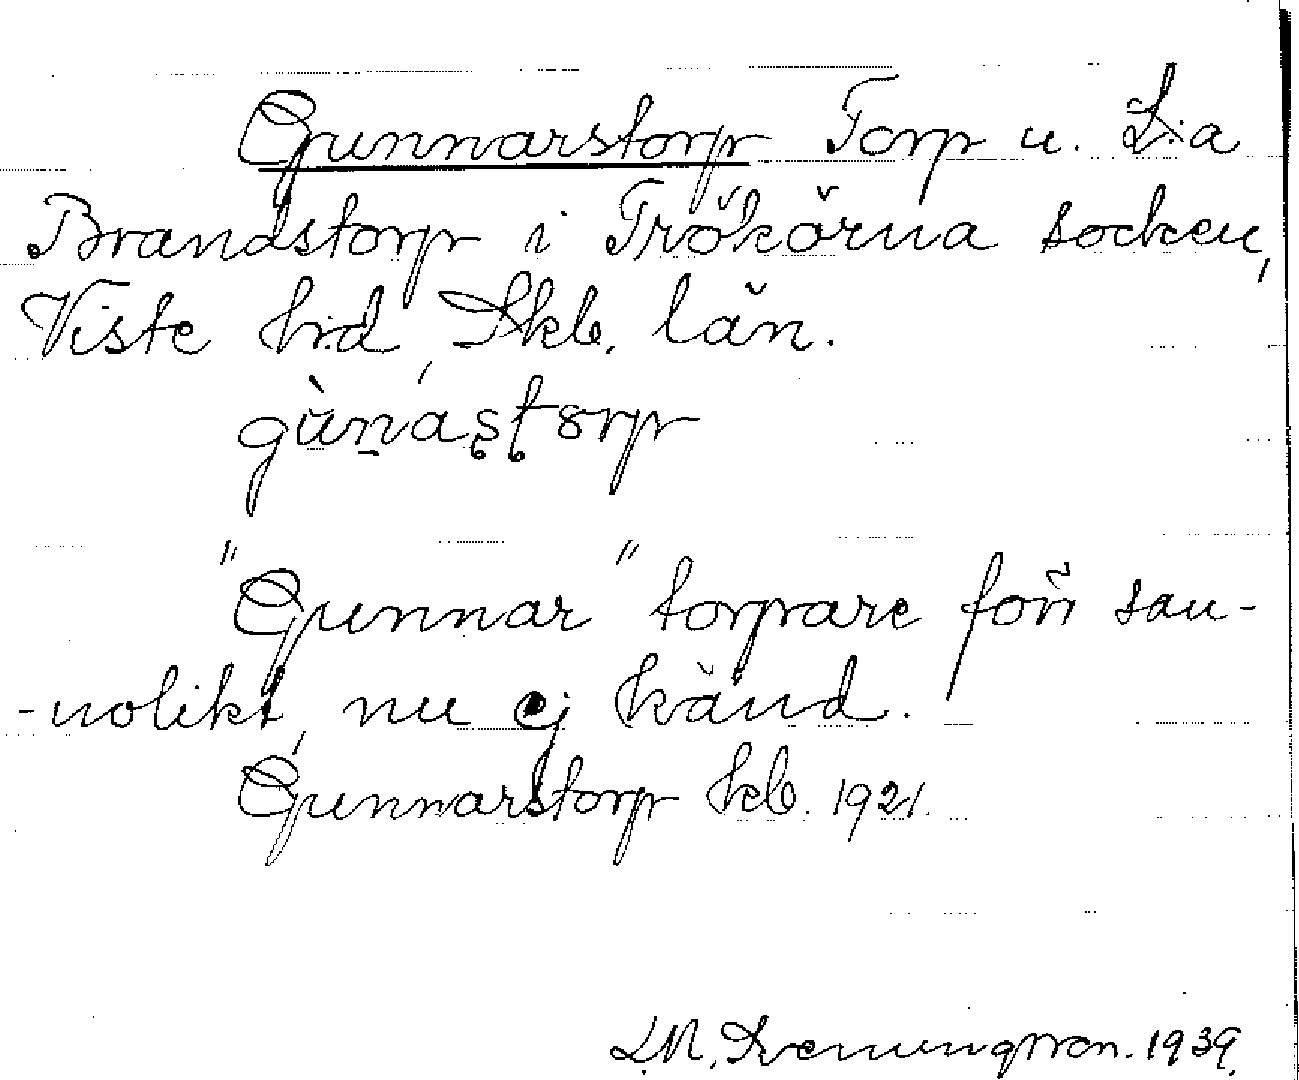 Gunnarstorp Torp u. L:a
Brandstorp i Trökörna socken,
Viste h:d, Skb. län.
gùnásto̱rp
"Gunnar" torpare förr san-
-nolikt, nu ej känd.
Gunnarstorp kb. 1921.
L.M. Svenungsson. 1939.